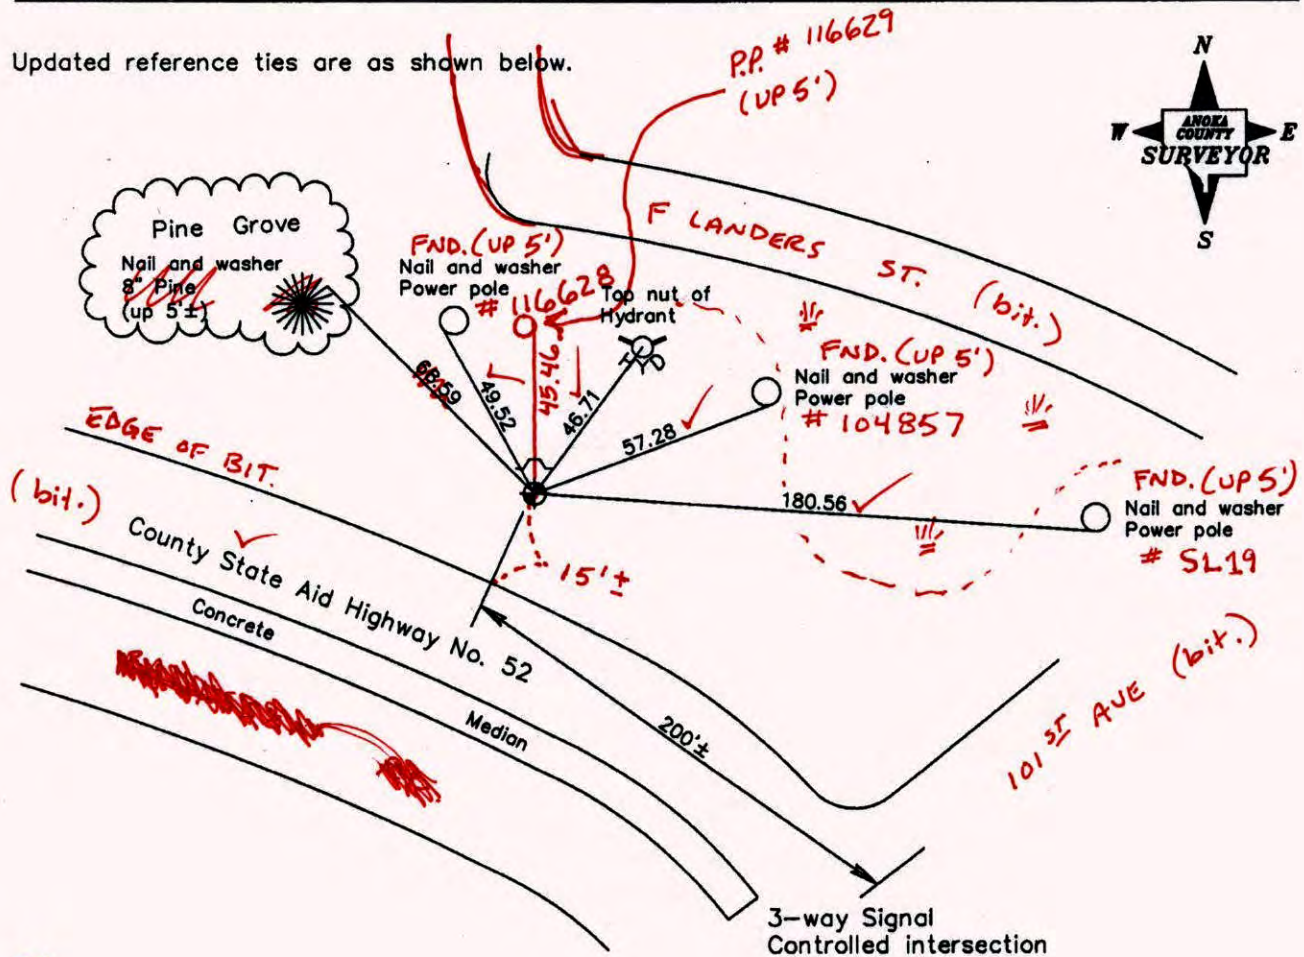 Updated reference ties are as shown below.
P.P. # 116629
(UP 5')
N
W
ANOKA
COUNTY
E
SURVEYOR
S
Pine Grove
Nail and washer
8" Pine
(up 5'±)
FND. (UP 5')
Nail and washer
Power pole
# 116628
Top nut of
Hydrant
HYD
F LANDERS ST. (bit.)
FND. (UP 5')
Nail and washer
Power pole
# 104857
68.59
49.52
45.46
46.71
57.28
180.56
FND. (UP 5')
Nail and washer
Power pole
# SL19
EDGE OF BIT.
(bit.)
County State Aid Highway No. 52
15'±
Concrete
Median
200'±
101 ST AVE (bit.)
3-way Signal
Controlled intersection